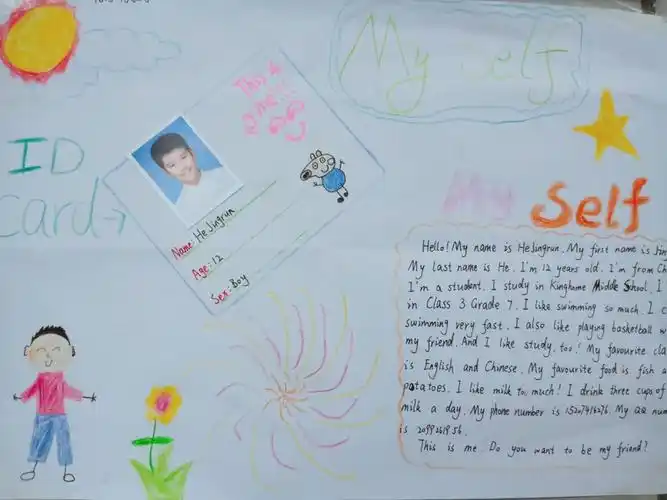 My Self
This is
me
ID
card
Name: HeJingrun
Age: 12
Sex: Boy
My Self
Hello! My name is HeJingrun. My first name is Jin
My last name is He. I'm 12 years old. I'm from Ch
I'm a student. I study in Kinghome Middle School. I
in Class 3 Grade 7. I like swimming so much. I c
swimming very fast. I also like playing basketball w
my friend. And I like study, too! My favourite cla
is English and Chinese. My favourite food is fish a
potatoes. I like milk too much! I drink three cups of
milk a day. My phone number is 15207416276. My QQ num
is 2099261956.
This is me. Do you want to be my friend?